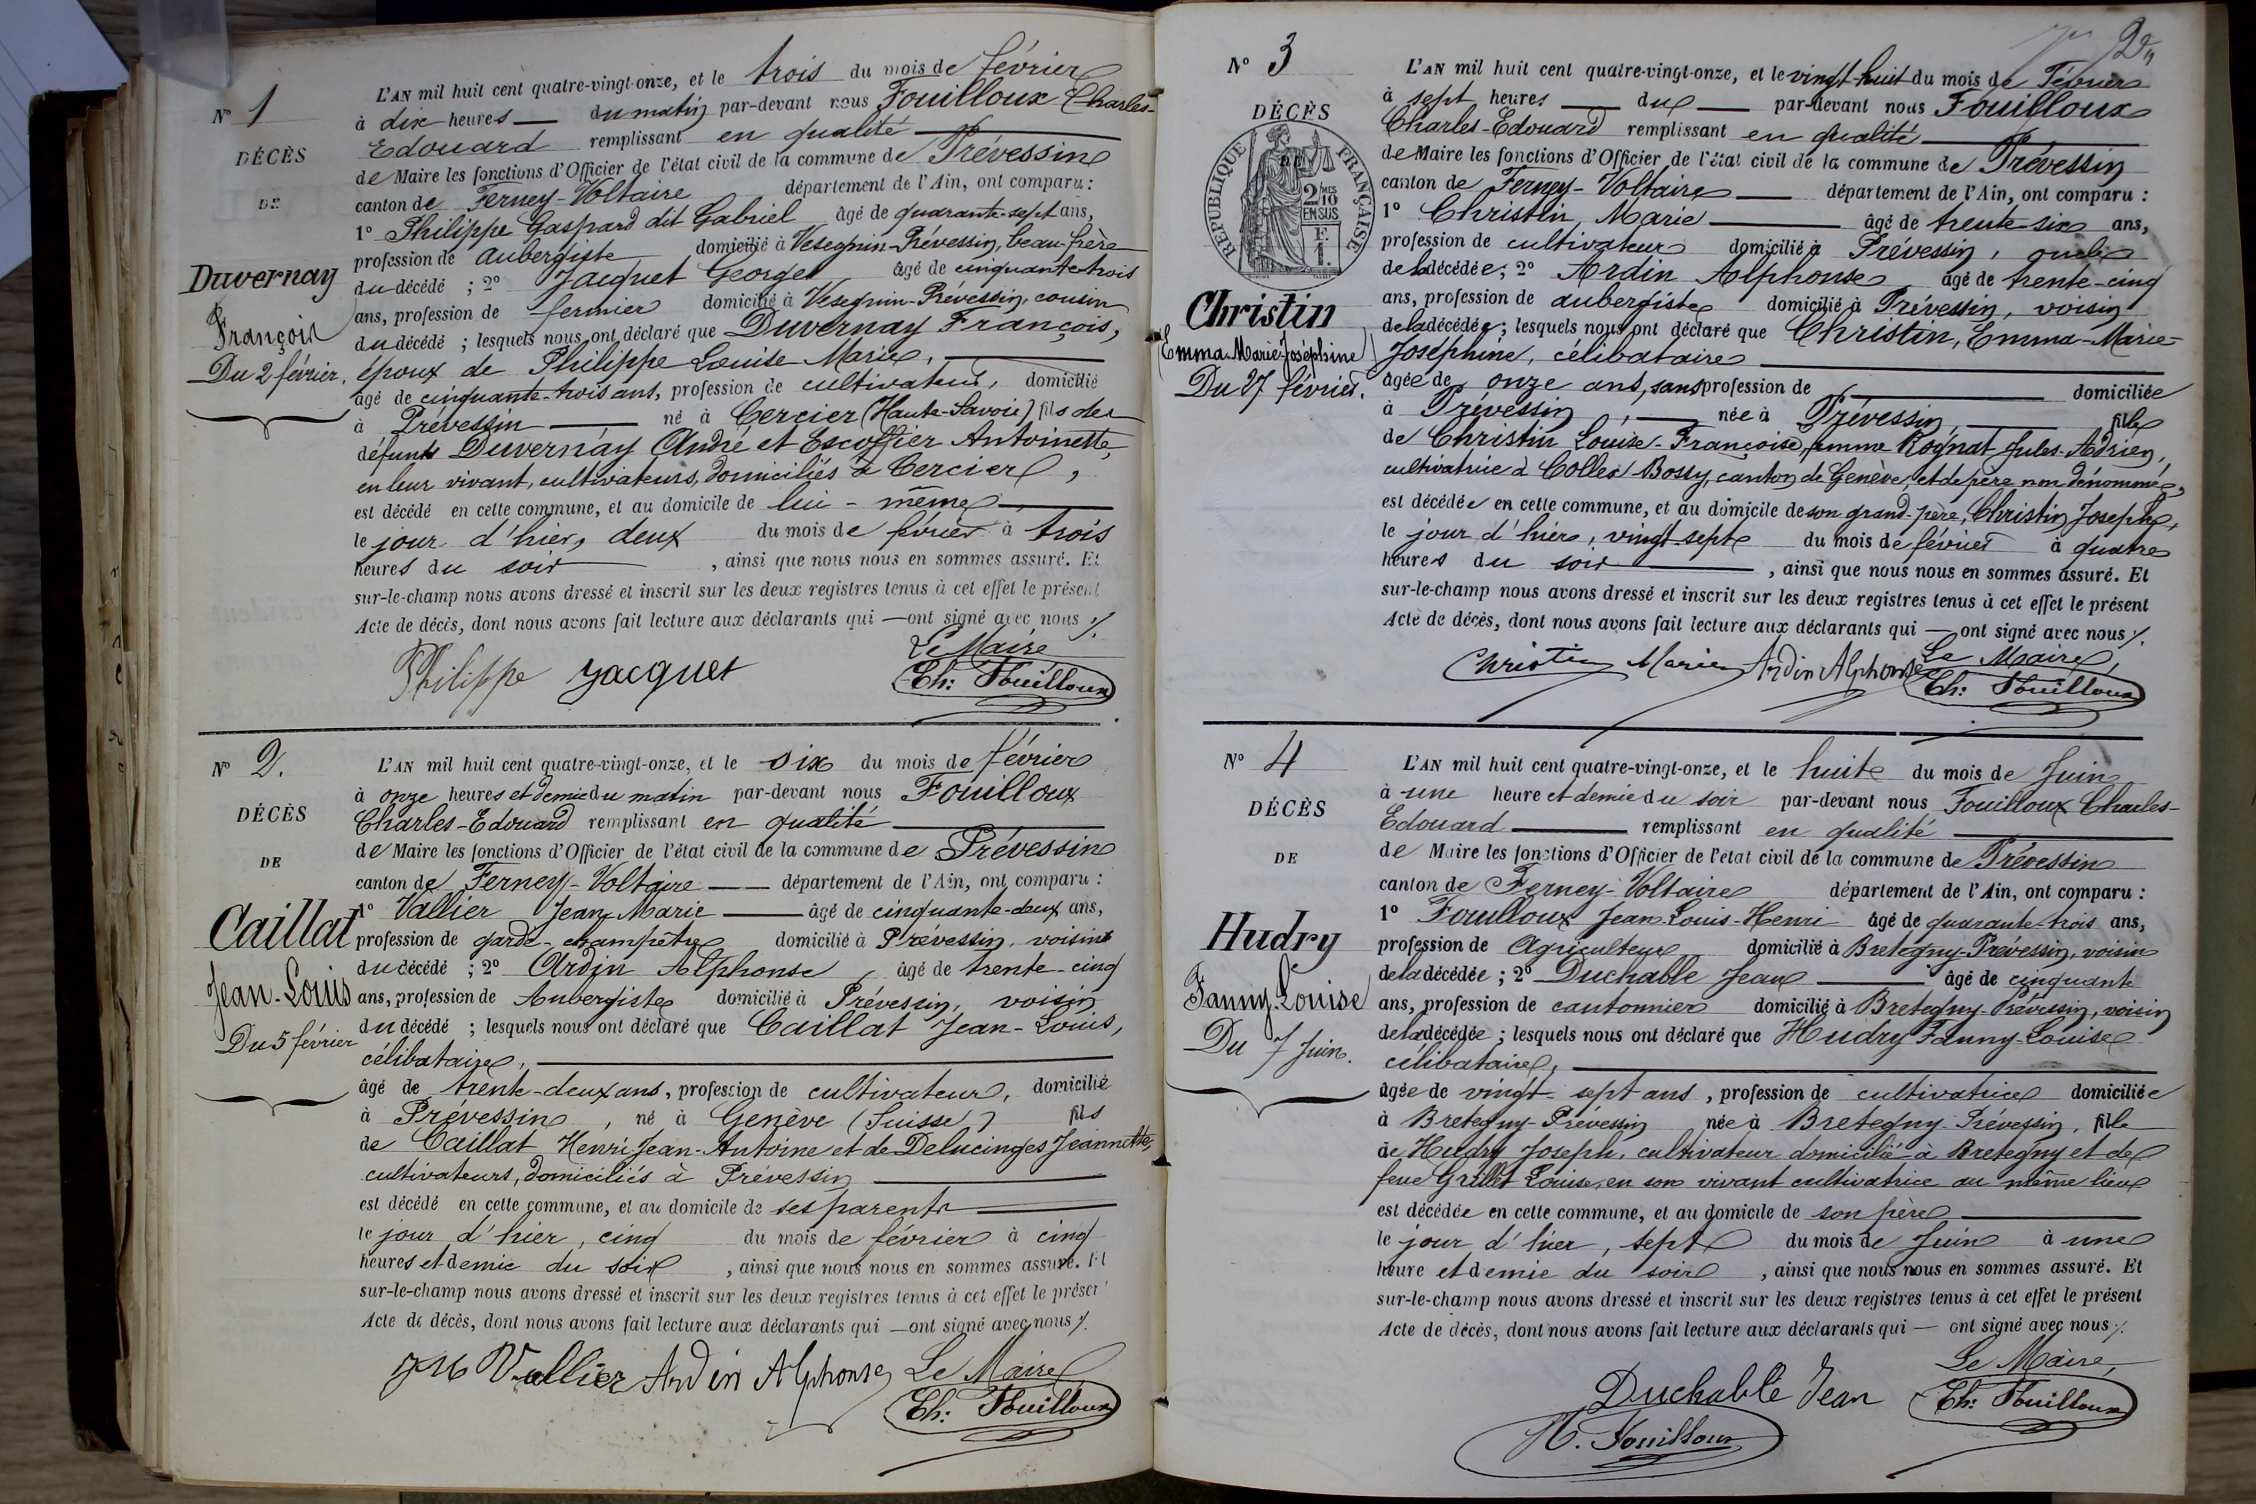 N° 1
DÉCÈS
DE
Duvernay
François
Du 2 février.
L'AN mil huit cent quatre-vingt-onze, et le trois du mois de février
à dix heures du matin par-devant nous Fouilloux Charles-
Edouard remplissant en qualité
de Maire les fonctions d'Officier de l'état civil de la commune de Prévessin
canton de Ferney-Voltaire département de l'Ain, ont comparu :
1° Philippe Gaspard dit Gabriel âgé de quarante-sept ans,
profession de aubergiste domicilié à Vesegnin-Prévessin, beau-frère
du décédé ; 2° Jacquet George âgé de cinquante-trois
ans, profession de fermier domicilié à Vesegnin-Prévessin, cousin
du décédé ; lesquels nous ont déclaré que Duvernay François,
époux de Philippe Louise Marie,
âgé de cinquante-trois ans, profession de cultivateur, domicilié
à Prévessin né à Cercier (Haute-Savoie) fils des
défunts Duvernay André et Escoffier Antoinette,
en leur vivant, cultivateurs, domiciliés à Cercier,
est décédé en cette commune, et au domicile de lui-même
le jour d'hier, deux du mois de février à trois
heures du soir , ainsi que nous nous en sommes assuré. Et
sur-le-champ nous avons dressé et inscrit sur les deux registres tenus à cet effet le présent
Acte de décès, dont nous avons fait lecture aux déclarants qui — ont signé avec nous ./.
Le Maire
Philippe Jacquet Ch: Fouilloux
N° 2.
DÉCÈS
DE
Caillat
Jean-Louis
Du 5 février
L'AN mil huit cent quatre-vingt-onze, et le six du mois de février
à onze heures et demie du matin par-devant nous Fouilloux
Charles-Edouard remplissant en qualité
de Maire les fonctions d'Officier de l'état civil de la commune de Prévessin
canton de Ferney-Voltaire département de l'Ain, ont comparu :
1° Vallier Jean Marie âgé de cinquante-deux ans,
profession de garde-champêtre domicilié à Prévessin, voisin
du décédé ; 2° Ardin Alphonse, âgé de trente-cinq
ans, profession de Aubergiste domicilié à Prévessin, voisin
du décédé ; lesquels nous ont déclaré que Caillat Jean-Louis,
célibataire,
âgé de trente-deux ans, profession de cultivateur, domicilié
à Prévessin, né à Genève (Suisse) fils
de Caillat Henri Jean-Antoine et de Delucinges Jeannette,
cultivateurs, domiciliés à Prévessin
est décédé en cette commune, et au domicile de ses parents
le jour d'hier, cinq du mois de février à cinq
heures et demie du soir , ainsi que nous nous en sommes assuré. Et
sur-le-champ nous avons dressé et inscrit sur les deux registres tenus à cet effet le présent
Acte de décès, dont nous avons fait lecture aux déclarants qui — ont signé avec nous ./.
JM Vallier Ardin Alphonse Le Maire
Ch: Fouilloux
N° 3
DÉCÈS
RÉPUBLIQUE FRANÇAISE
2/10MES
EN SUS
F.
1.
Christin
Emma-Marie-Joséphine
Du 27 février.
L'AN mil huit cent quatre-vingt-onze, et le vingt-huit du mois de Février
à sept heures du par-devant nous Fouilloux
Charles-Edouard remplissant en qualité
de Maire les fonctions d'Officier de l'état civil de la commune de Prévessin
canton de Ferney-Voltaire département de l'Ain, ont comparu :
1° Christin, Marie âgé de trente-six ans,
profession de cultivateur domicilié à Prévessin, oncle
de la décédée ; 2° Ardin Alphonse âgé de trente-cinq
ans, profession de aubergiste domicilié à Prévessin, voisin
de la décédée ; lesquels nous ont déclaré que Christin, Emma-Marie-
Joséphine, célibataire
âgée de onze ans, sans profession de domiciliée
à Prévessin, née à Prévessin fille
de Christin Louise-Françoise, femme Rognat Jules-Adrien,
cultivatrice à Collex Bossy, canton de Genève, et de père non dénommé,
est décédée en cette commune, et au domicile de son grand-père, Christin Joseph,
le jour d'hier, vingt-sept du mois de février à quatre
heures du soir , ainsi que nous nous en sommes assuré. Et
sur-le-champ nous avons dressé et inscrit sur les deux registres tenus à cet effet le présent
Acte de décès, dont nous avons fait lecture aux déclarants qui — ont signé avec nous ./.
Christin Marie Ardin Alphonse Le Maire,
Ch: Fouilloux
N° 4
DÉCÈS
DE
Hudry
Fanny-Louise
Du 7 Juin.
L'AN mil huit cent quatre-vingt-onze, et le huit du mois de Juin
à une heure et demie du soir par-devant nous Fouilloux Charles-
Edouard remplissant en qualité
de Maire les fonctions d'Officier de l'état civil de la commune de Prévessin
canton de Ferney-Voltaire département de l'Ain, ont comparu :
1° Fouilloux Jean-Louis-Henri âgé de quarante-trois ans,
profession de Agriculteur domicilié à Bretegny-Prévessin, voisin
de la décédée ; 2° Duchable Jean âgé de cinquante
ans, profession de cantonnier domicilié à Bretegny-Prévessin, voisin
de la décédée ; lesquels nous ont déclaré que Hudry Fanny-Louise
célibataire,
âgée de vingt-sept ans, profession de cultivatrice domiciliée
à Bretegny-Prévessin née à Bretegny-Prévessin, fille
de Hudry Joseph, cultivateur domicilié à Bretegny et de
feue Grillet Louise, en son vivant cultivatrice au même lieu
est décédée en cette commune, et au domicile de son père
le jour d'hier, sept du mois de Juin à une
heure et demie du soir , ainsi que nous nous en sommes assuré. Et
sur-le-champ nous avons dressé et inscrit sur les deux registres tenus à cet effet le présent
Acte de décès, dont nous avons fait lecture aux déclarants qui — ont signé avec nous ./.
Le Maire,
Duchable Jean Ch: Fouilloux
H. Fouilloux